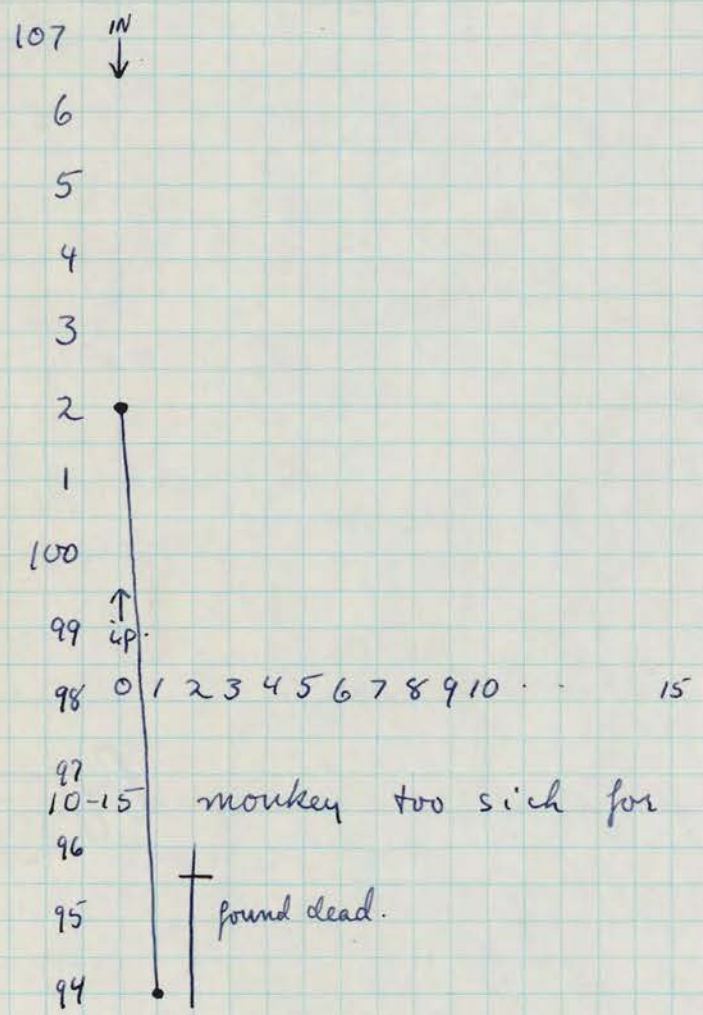 107 IN
6
5
4
3
2
1
100
99 ip.
98 0 1 2 3 4 5 6 7 8 9 10 . . 15
97
10-15 monkey too sick for
96
95 found dead.
94